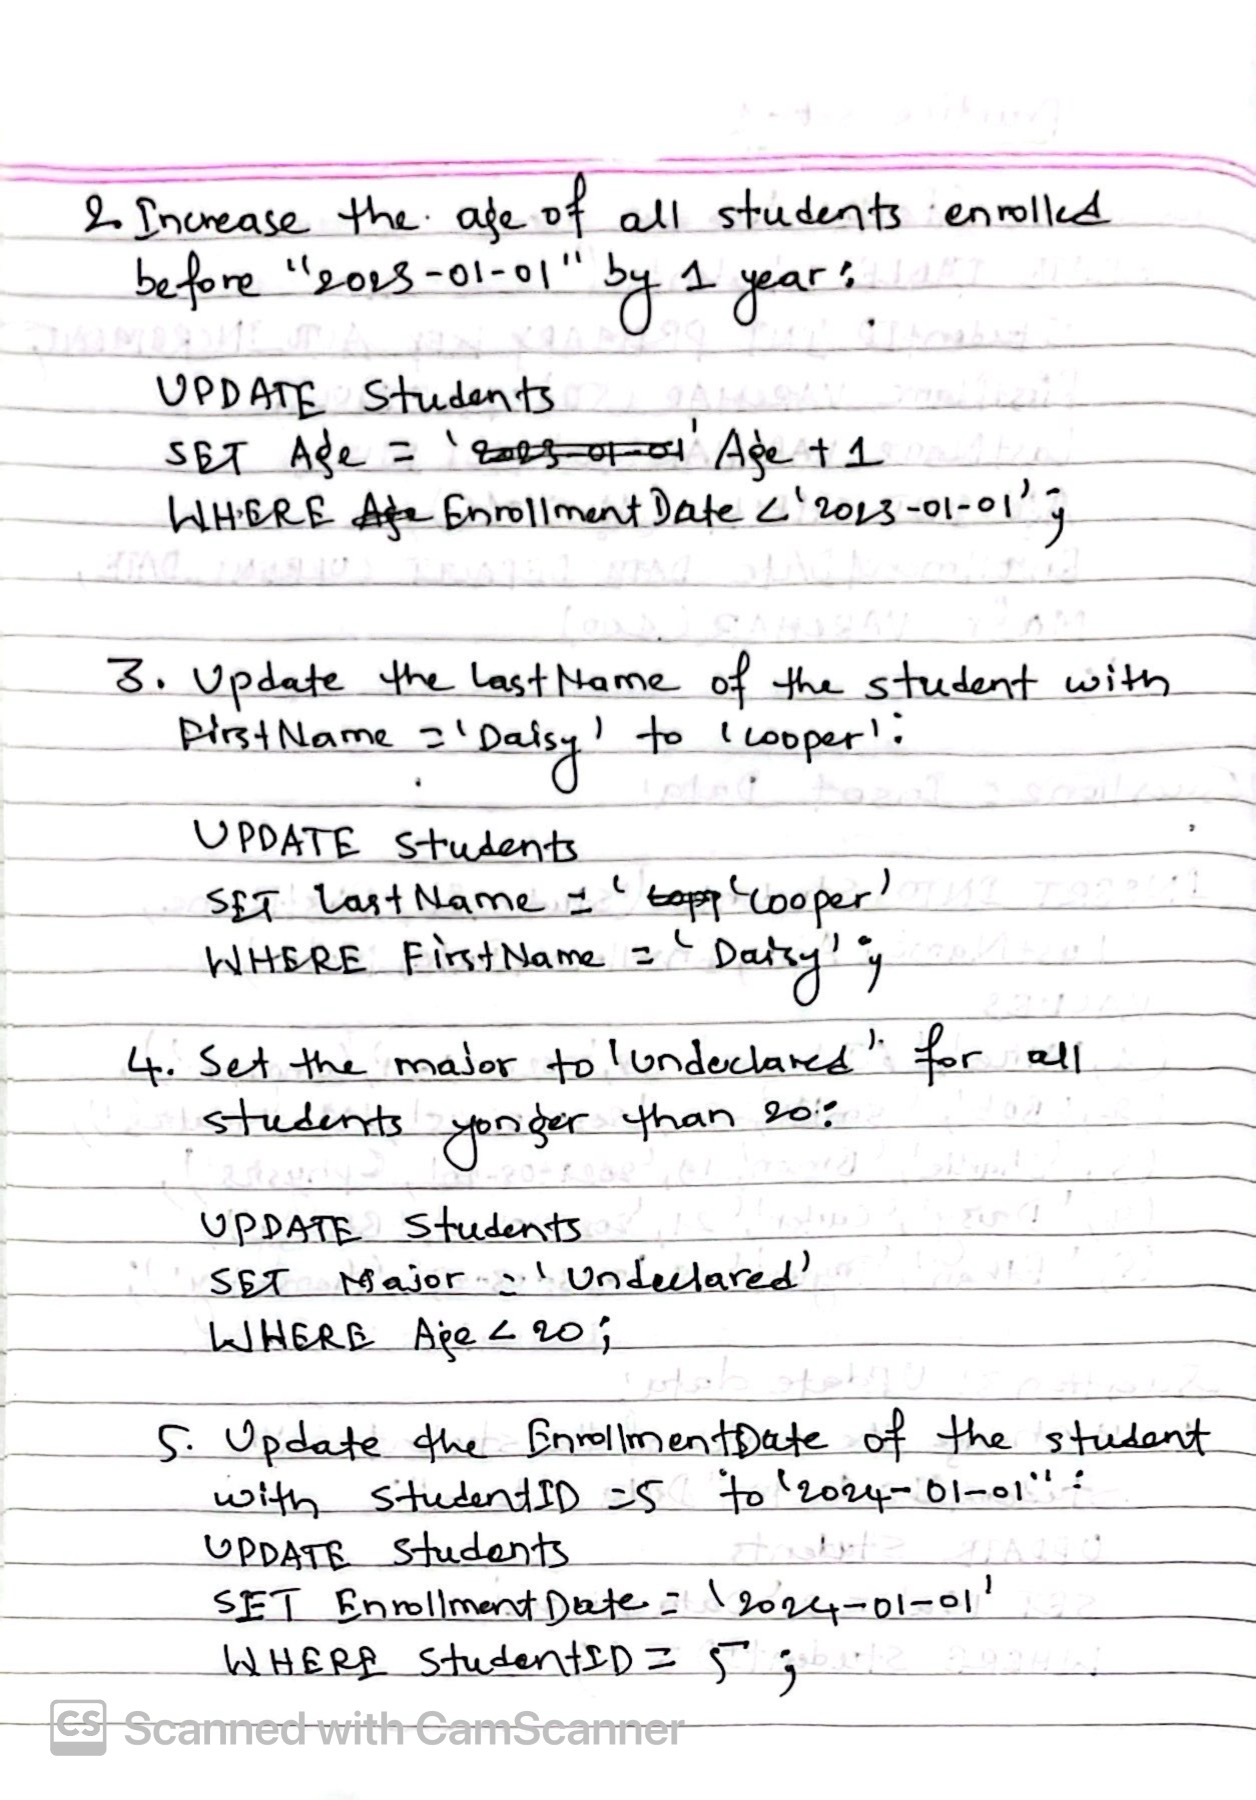 2. Increase the age of all students enrolled
before "2023-01-01" by 1 year:
UPDATE Students
SET Age = '2023-01-01' Age + 1
WHERE Age EnrollmentDate < '2023-01-01';
3. Update the LastName of the student with
FirstName = 'Daisy' to 'Cooper':
UPDATE Students
SET LastName = ' 'Cooper'
WHERE FirstName = 'Daisy';
4. Set the major to 'Undeclared' for all
students yonger than 20:
UPDATE Students
SET Major = 'Undeclared'
WHERE Age < 20;
5. Update the EnrollmentDate of the student
with StudentID = 5 to '2024-01-01":
UPDATE Students
SET EnrollmentDate = '2024-01-01'
WHERE StudentID = 5;
CS Scanned with CamScanner